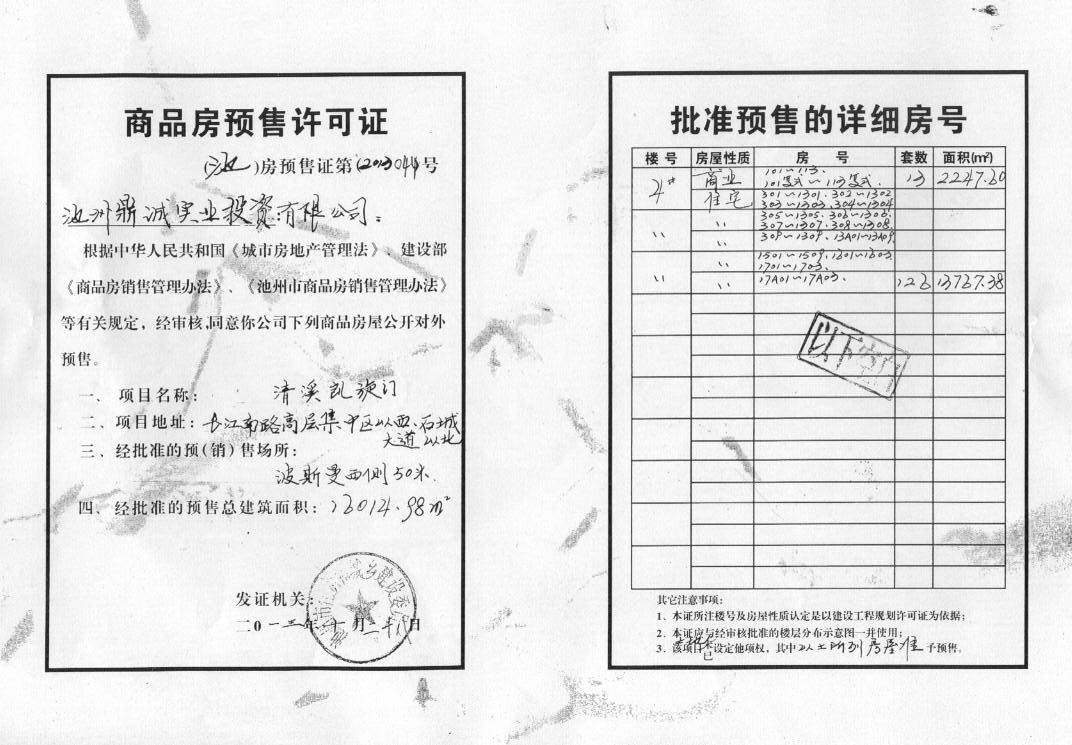 商品房预售许可证
(池)房预售证第(2013)044号
池州鼎诚实业投资有限公司:
根据中华人民共和国《城市房地产管理法》、建设部
《商品房销售管理办法》、《池州市商品房销售管理办法》
等有关规定，经审核,同意你公司下列商品房屋公开对外
预售。
一、项目名称: 清溪凯旋门
二、项目地址: 长江南路高层集中区以西、石城
大道以北
三、经批准的预(销)售场所:
波斯曼西侧50米.
四、经批准的预售总建筑面积: 16014.98m²
发证机关:
二0一三年
批准预售的详细房号
楼号 房屋性质 房号 套数 面积(m²)
4# 商业 101~113. 13 2247.60
101复式~113复式.
住宅 301~1301. 302~1302
303~1303. 304~1304
305~1305. 306~1306.
〃 〃 307~1307. 308~1308.
309~1309. 13A01~13A09
1501~1509. 1601~1603
〃 〃 1701~1703.
〃 17A01~17A03. 126 13767.38
以下空白
其它注意事项:
1、本证所注楼号及房屋性质认定是以建设工程规划许可证为依据;
2、本证应与经审核批准的楼层分布示意图一并使用;
3、该项目未已设定他项权，其中以上所列房屋准予预售。